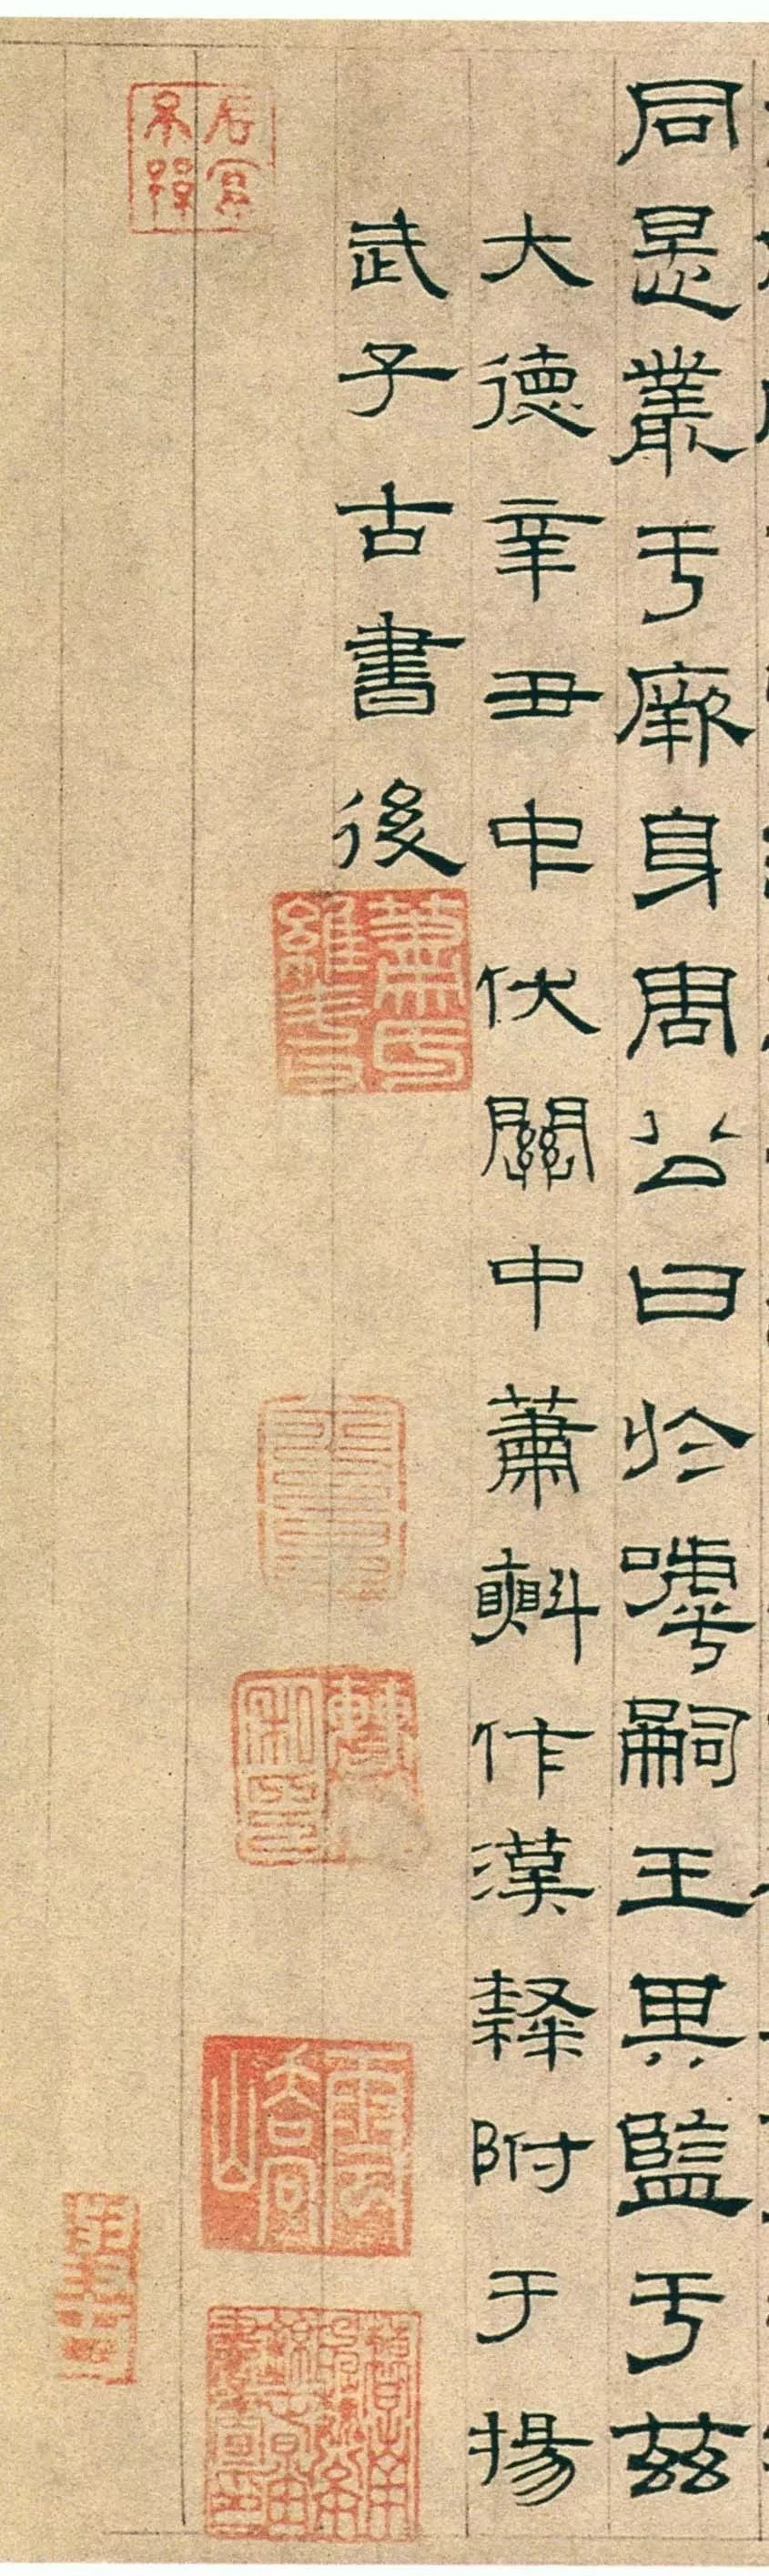 同是叢于厥身周公曰於嘑嗣王其監于茲
大德辛丑中伏關中蕭𣂏作漢隸附于揚
武子古書後
蕭氏維斗